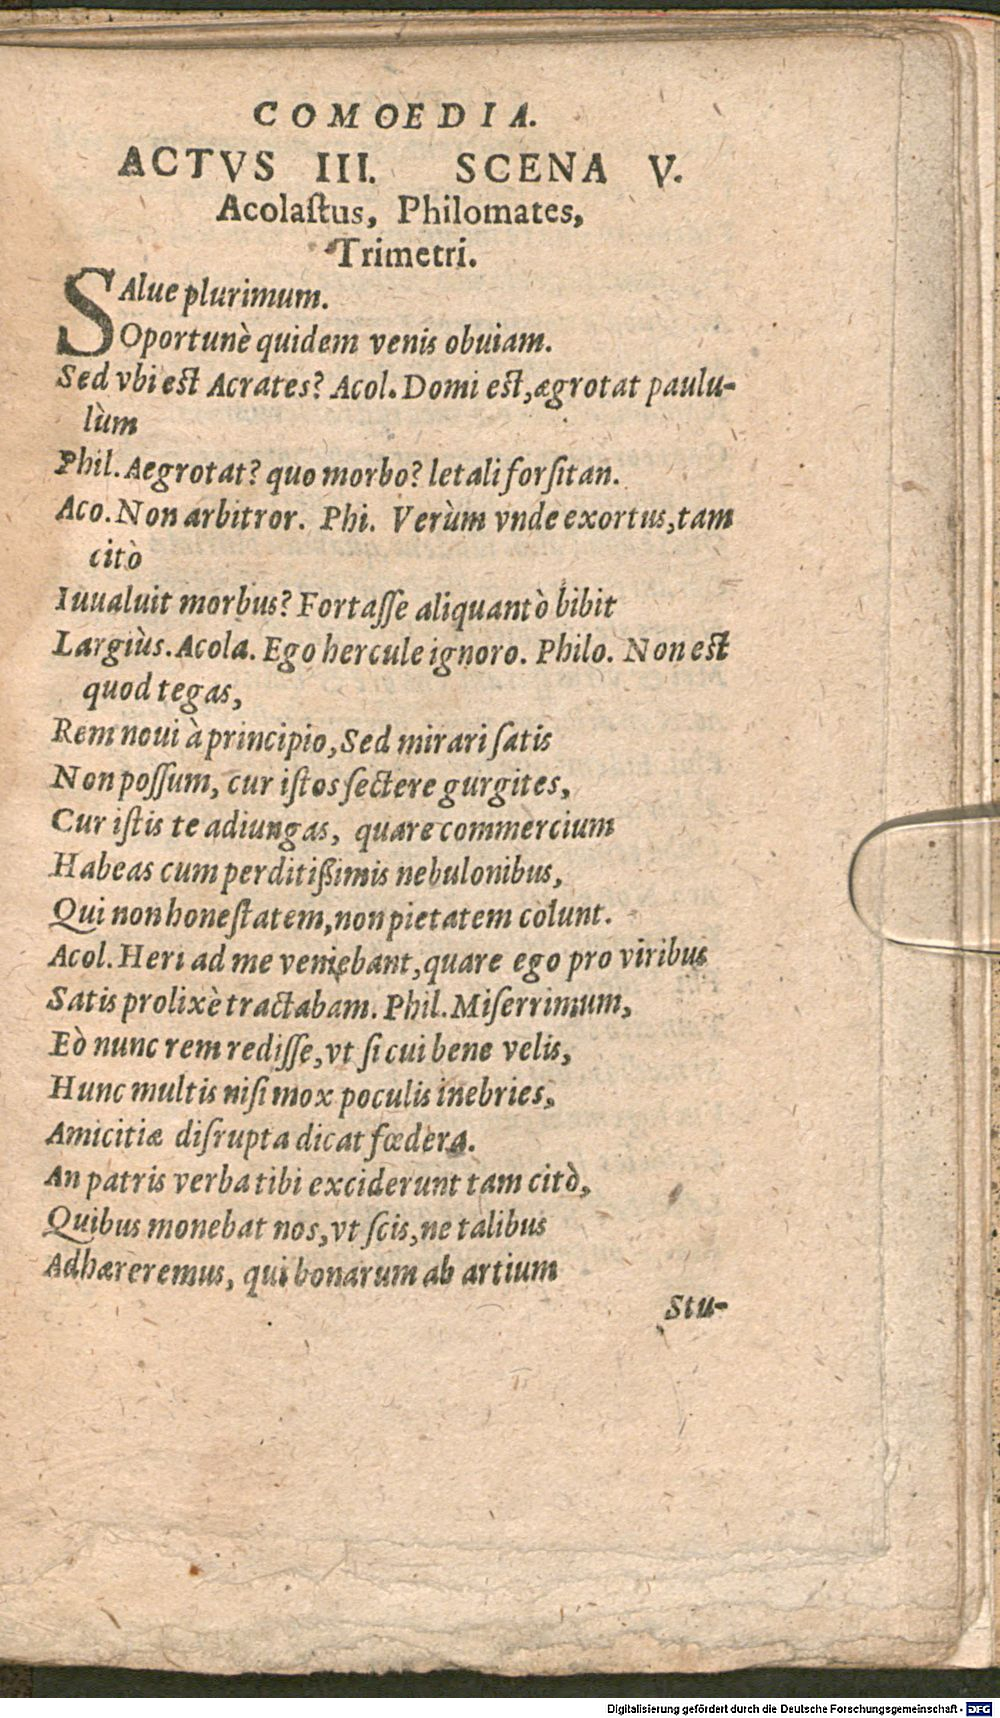 COMOEDIA.
ACTVS III. SCENA V.
Acolaſtus, Philomates,
Trimetri.
SAlue plurimum.
Oportunè quidem venis obuiam.
Sed vbi eſt Acrates? Acol. Domi eſt, ægrotat paulu-
lùm
Phil. Aegrotat? quo morbo? letali forſitan.
Aco. Non arbitror. Phi. Verùm vnde exortus, tam
citò
Iuualuit morbus? Fortaſſe aliquantò bibit
Largiùs. Acola. Ego hercule ignoro. Philo. Non eſt
quod tegas,
Rem noui à principio, Sed mirari ſatis
Non poſſum, cur iſtos ſectere gurgites,
Cur iſtis te adiungas, quare commercium
Habeas cum perditißimis nebulonibus,
Qui non honeſtatem, non pietatem colunt.
Acol. Heri ad me veniebant, quare ego pro viribus
Satis prolixè tractabam. Phil. Miſerrimum,
Eò nunc rem rediſſe, vt ſi cui bene velis,
Hunc multis niſi mox poculis inebries,
Amicitiæ diſrupta dicat fœdera.
An patris verba tibi exciderunt tam citò,
Quibus monebat nos, vt ſcis, ne talibus
Adhæreremus, qui bonarum ab artium
Stu-
Digitalisierung gefördert durch die Deutsche Forschungsgemeinschaft - DFG